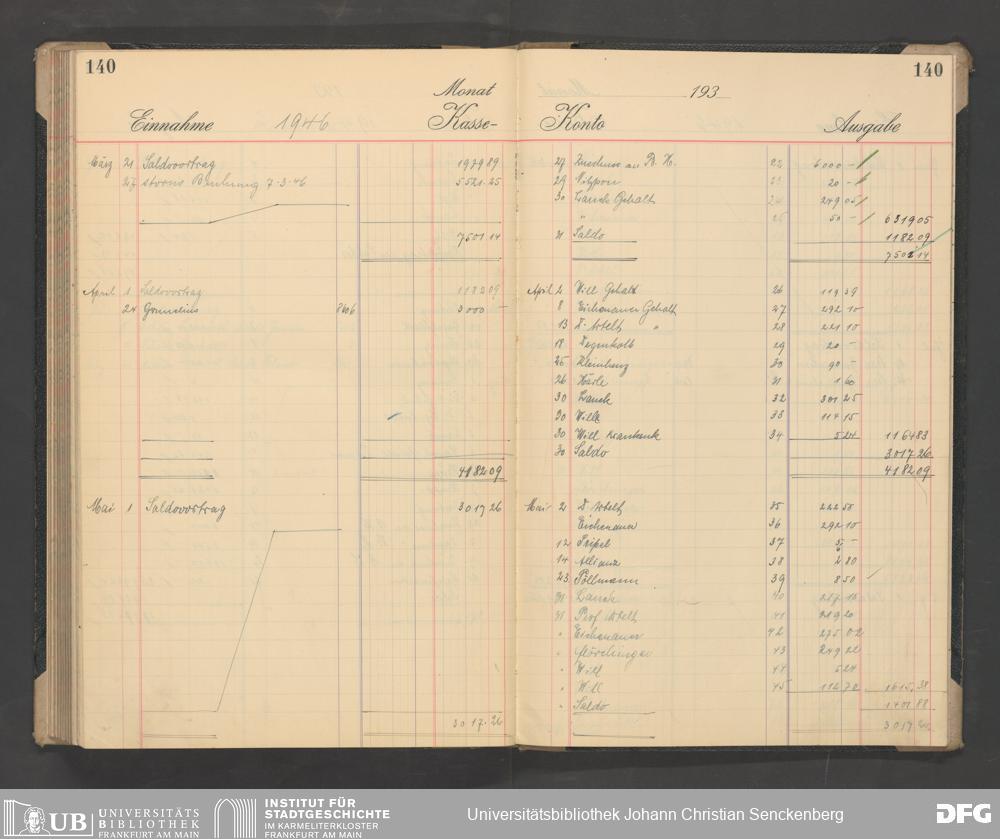 140
Monat
Einnahme 1946 Kasse-
März 21 Saldovortrag 1979 89
27 7.3.46 5521.25
7501.14
April 1 Saldovortrag 1182 09
24 8606 3000 -
4182 09
Mai 1 Saldovortrag 3017 26
3017.26
140
193
Konto Ausgabe
27 an B. H. 22 6000 -
29 23 20 -
30 Gehalt 24 249 05
" 25 50 - 6319 05
31 Saldo 1182 09
7501 14
April 2 Will Gehalt 26 119 39
8 Eichenauer Gehalt 27 292 10
13 " 28 221 10
18 Degenkolb 29 20 -
25 30 90 -
26 Härle 31 1 60
30 32 301 25
30 Will 33 114 15
30 Will 34 5 24 1164 83
30 Saldo 3017 26
4182 09
Mai 2 35 222 50
Eichenauer 36 292 10
12 37 5 -
14 Allianz 38 2 80
23 Pöllmann 39 8 50
31 40
31 Prof 41
" Eichenauer 42 275 02
" 43 249 22
" Will 44 5 24
" Will 45 112 70 1615.38
" Saldo 1401 88
3017 26
UB UNIVERSITÄTS
BIBLIOTHEK
FRANKFURT AM MAIN
INSTITUT FÜR
STADTGESCHICHTE
IM KARMELITERKLOSTER
FRANKFURT AM MAIN
Universitätsbibliothek Johann Christian Senckenberg
DFG